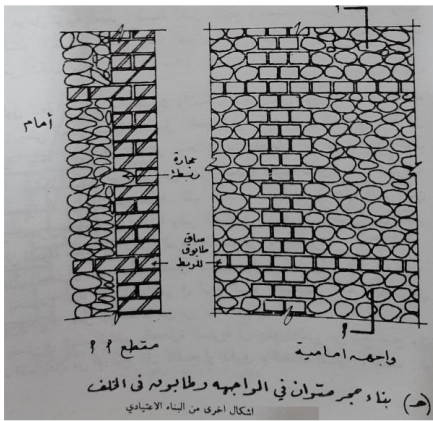 أ
أمام
حجارة
رابطة
ساق
طابوق
للربط
أ
مقطع أ أ
واجهه امامية
(هـ) بناء حجر متوان في الواجهه وطابوق في الخلف
اشكال اخرى من البناء الاعتيادي